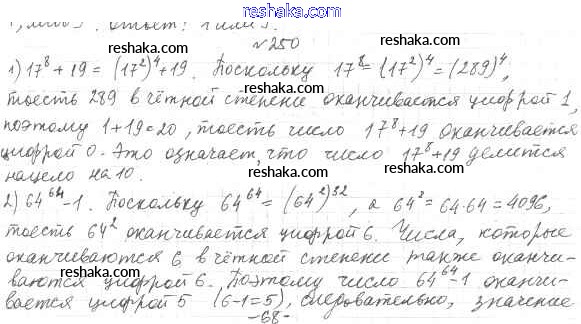 reshaka.ru
№250
reshaka.ru
1) 17⁸ + 19 = (17²)⁴ + 19. Поскольку 17⁸ = (17²)⁴ = (289)⁴,
тоесть 289 в чётной степени оканчивается цифрой 1,
reshaka.ru
поэтому 1 + 19 = 20, тоесть число 17⁸ + 19 оканчивается
цифрой 0. Это означает, что число 17⁸ + 19 делится
reshaka.ru
нацело на 10.
2) 64⁶⁴ - 1. Поскольку 64⁶⁴ = (64²)³², а 64² = 64·64 = 4096,
reshaka.ru
тоесть 64² оканчивается цифрой 6. Числа, которые
оканчиваются 6 в чётной степени также оканчи-
reshaka.ru
ваются цифрой 6. Поэтому число 64⁶⁴-1 оканчи-
вается цифрой 5 (6-1=5), следовательно, значение
reshaka.ru
-68-